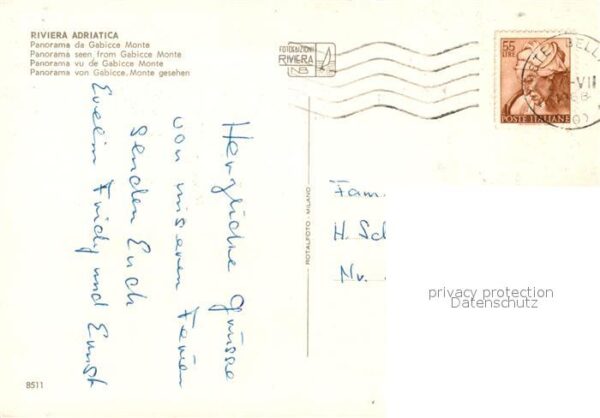 RIVIERA ADRIATICA
Panorama da Gabicce Monte
Panorama seen from Gabicce Monte
Panorama vu de Gabicce Monte
Panorama von Gabicce, Monte gesehen
FOTOEDIZIONI
RIVIERA
55
LIRE
POSTE ITALIANE
BELL
VII
Herzliche Grüsse
von unseren Ferien
senden Euch
Evelin Fridy und Ernst
ROTALFOTO - MILANO
Fam.
H. Sch
Nr.
privacy protection
Datenschutz
8511